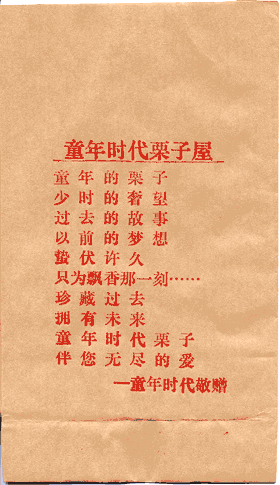 童年时代栗子屋
童年的栗子
少时的奢望
过去的故事
以前的梦想
蛰伏许久
只为飘香那一刻……
珍藏过去
拥有未来
童年时代栗子
伴您无尽的爱
—童年时代敬赠